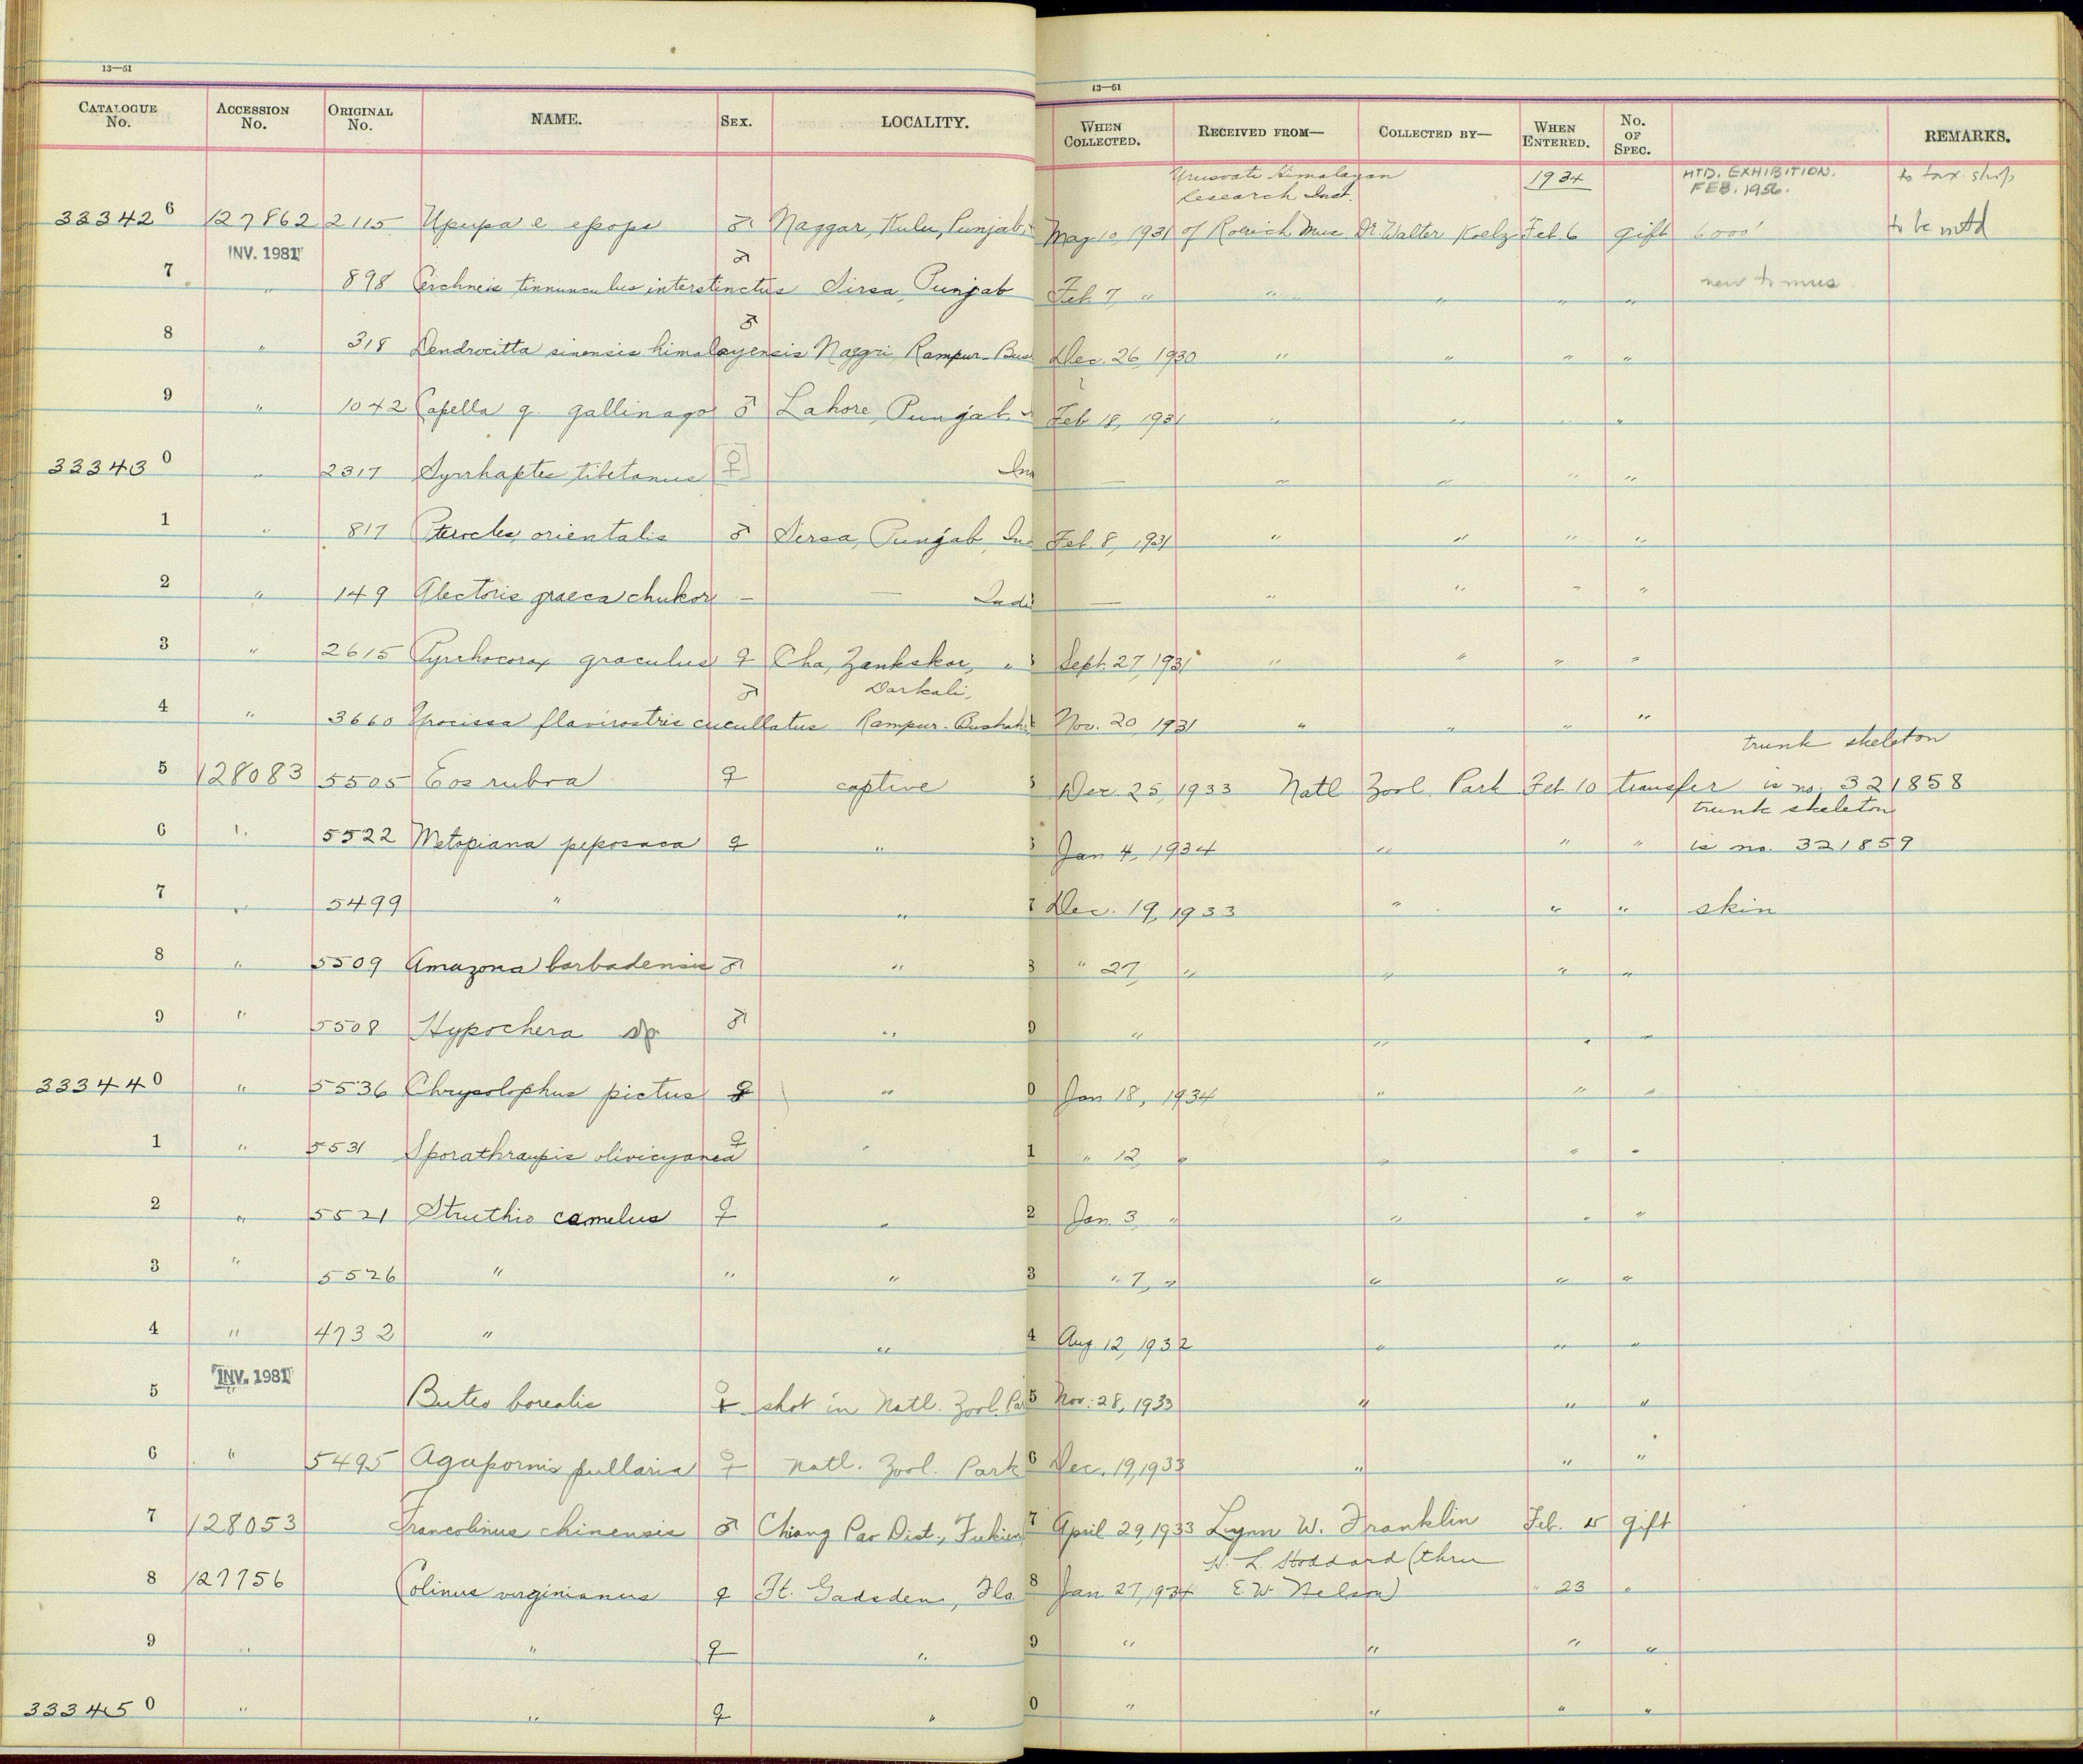 13—51
CATALOGUE No. ACCESSION No. ORIGINAL No. NAME. SEX. LOCALITY.
333426 127862 2115 Upupa e epops ♂ Naggar, Kulu, Punjab,
INV. 1981
7 " 898 Cerchneis tinnunculus interstinctus ♂ Sirsa, Punjab
8 " 318 Dendrocitta sinensis himalayensis ♂ Naggri, Rampur-Bus
9 " 1042 Capella g. gallinago ♂ Lahore, Punjab, "
333430 " 2317 Syrrhaptes tibetanus [♀] In
1 " 817 Pterocles orientalis ♂ Sirsa, Punjab, In
2 " 149 Alectoris graeca chukor — — Indi
3 " 2615 Pyrrhocorax graculus ♀ Cha, Zankskar, "
4 " 3660 Urocissa flavirostris cucullatus ♂ Darkali, Rampur-Bushahr
5 128083 5505 Eos rubra ♀ captive
6 " 5522 Metopiana peposaca ♀ "
7 " 5499 " "
8 " 5509 Amazona barbadensis ♂ "
9 " 5508 Hypochera sp ♂ "
333440 " 5536 Chrysolophus pictus ♀ "
1 " 5531 Sporathraupis olivicyanea ♀ "
2 " 5521 Struthio camelus ♀ "
3 " 5526 " " "
4 " 4732 " "
INV. 1981
5 " Buteo borealis ♀ shot in Natl. Zool. Pa
6 " 5495 Agapornis pullaria ♀ Natl. Zool. Park
7 128053 Francolinus chinensis ♂ Chiang Pao Dist., Fukien,
8 127756 Colinus virginianus ♀ Ft. Gadsden, Fla.
9 " " ♀ "
333450 " " ♀ "
13—51
WHEN COLLECTED. RECEIVED FROM— COLLECTED BY— WHEN ENTERED. No. OF SPEC. REMARKS.
Urusvati Himalayan 1934 MTD. EXHIBITION. to tax. shop
Research Inst. FEB. 1956.
May 10, 1931 of Roerich Mus. Dr. Walter Koelz Feb. 6 gift 6000' to be mtd
Feb. 7, " " " " " new to mus
Dec. 26, 1930 " " " "
Feb 18, 1931 " " " "
— " " " "
Feb. 8, 1931 " " " "
— " " " "
Sept. 27, 1931 " " " "
Nov. 20 1931 " " " "
trunk skeleton
5 Dec. 25, 1933 Natl Zool. Park Feb 10 transfer is no. 321858
trunk skeleton
Jan 4, 1934 " " " is no. 321859
7 Dec. 19, 1933 " " " skin
8 " 27, " " " "
9 " " " "
0 Jan 18, 1934 " " "
1 " 12, " " " "
2 Jan. 3, " " " "
3 " 7, " " " "
4 Aug. 12, 1932 " " "
5 Nov. 28, 1933 " " "
6 Dec. 19, 1933 " " "
7 April 29, 1933 Lynn W. Franklin Feb. 15 gift
H. L. Stoddard (thru
8 Jan 27, 1934 E. W. Nelson) " 23 "
9 " " " "
0 " " " "